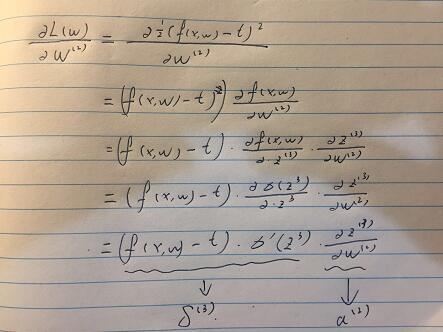 ∂L(w)/∂w⁽²⁾ = ∂½(f(x,w)-t)²/∂w⁽²⁾
= (f(x,w)-t) ∂f(x,w)/∂w⁽²⁾
= (f(x,w)-t) · ∂f(x,w)/∂·z⁽³⁾ · ∂z⁽³⁾/∂w⁽²⁾
= (f(x,w)-t) · ∂σ(z³)/∂·z³ · ∂z⁽³⁾/∂w⁽²⁾
= (f(x,w)-t) · σ'(z³) · ∂z⁽³⁾/∂w⁽²⁾
↓ ↓
δ⁽³⁾ a⁽²⁾